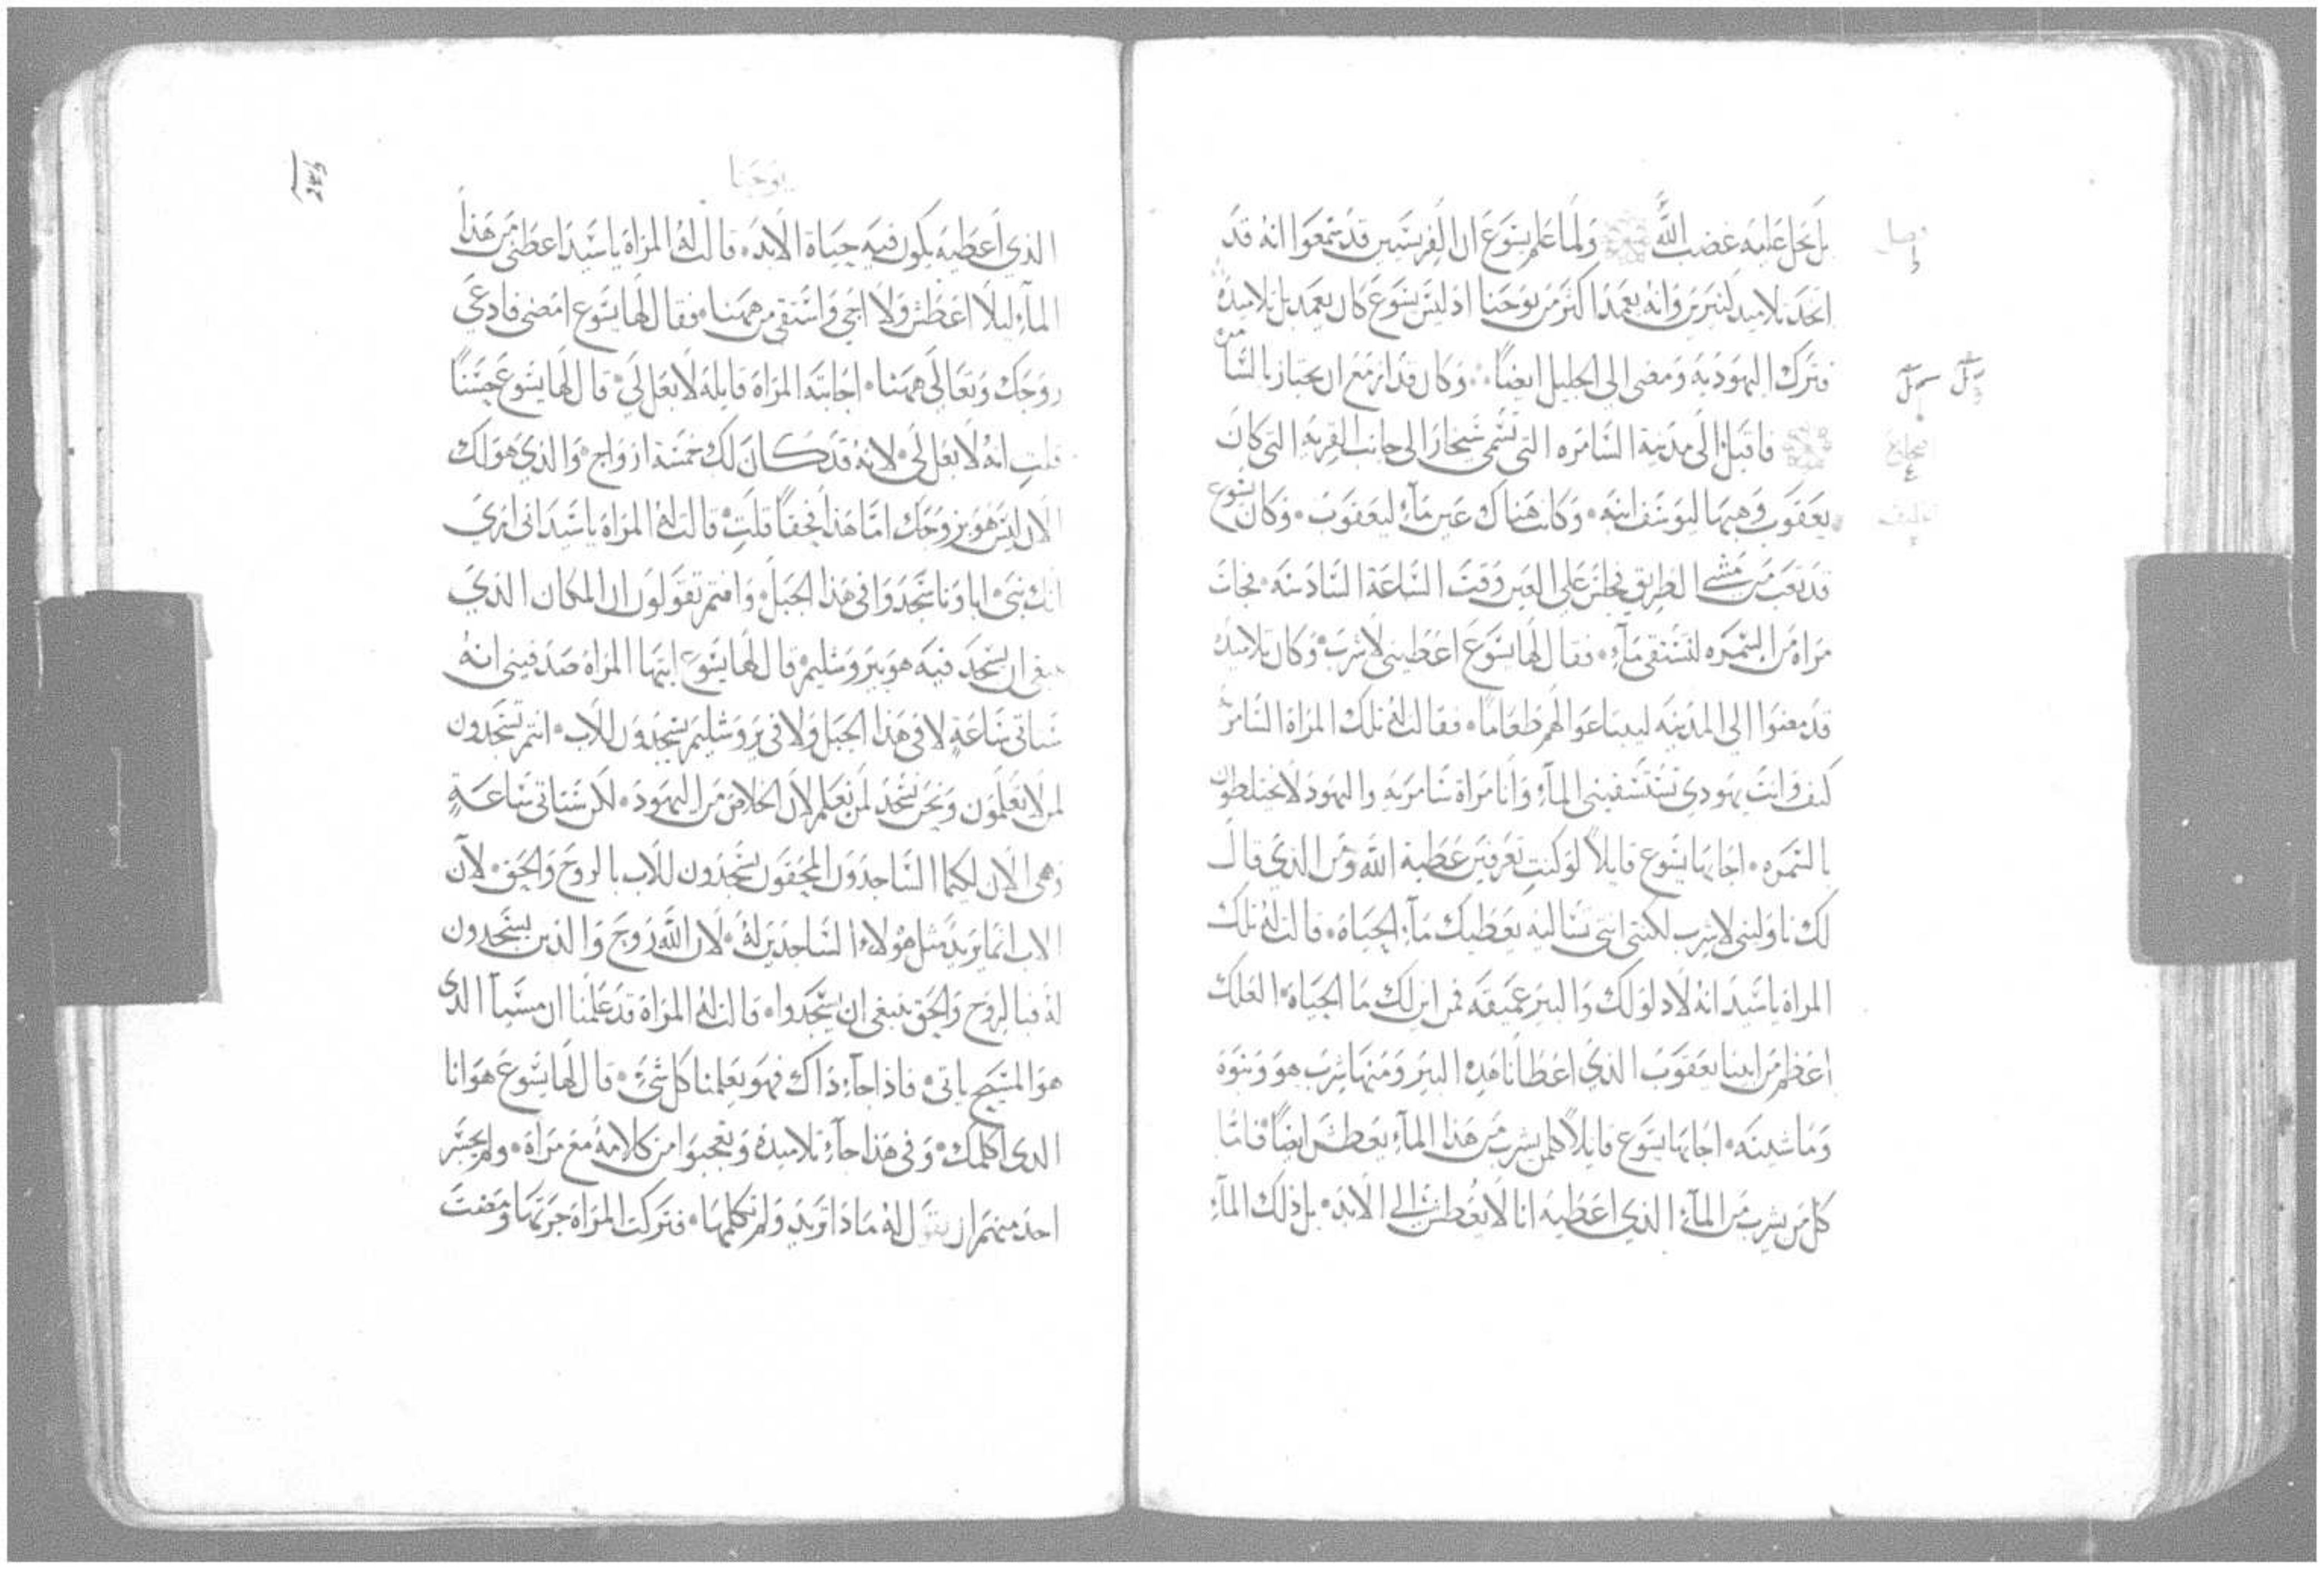 بل تحل عليه غضب الله ولما علم يسوع ان الفريسيين قد سمعوا انه قد
اتخذ تلاميد كثيرين وانه يعمد اكثر من يوحنا اد ليس يسوع كان يعمد بل تلاميده
فترك اليهوديه ومضى الى الجليل ايضاً وكان قد ازمع ان يجتاز بالسامره
فاقبل الى مدينة السامره التي تسمى سخار الى جانب القريه التي كان
يعقوب وهبها ليوسف ابنه وكانت هناك عين مآء ليعقوب وكان يسوع
قد تعب من مشى الطريق فجلس على العين وقت الساعة السادسه فجات
مراة من السمره لتستقى مآء فقال لها يسوع اعطيني لاشرب وكان تلاميده
قد مضوا الى المدينه ليبتاعوا لهم طعاما فقالت له تلك المراة السامريه
كيف وانت يهودي تستسقيني المآء وانا مراة سامريه واليهود لا يختلطون
بالسمره اجابها يسوع قايلاً لو كنتِ تعرفين عطية الله ومن الذي قال
لك ناوليني لاشرب لكنتي انتي تساليه يعطيك مآء الحياة قالت له تلك
المراة يا سيد انه لا دلو لك والبير عميقه فمن اين لك ما الحياة العلك
اعظم من ابينا يعقوب الذي اعطانا هده البير ومنها شرب هو وبنوه
وماشيته اجابها يسوع قايلاً كلمن يشرب من هذا المآء يعطش ايضاً فاما
كل من يشرب من المآء الذي اعطيه انا لا يعطش الى الابد بل ذلك المآء
يوحنا
الذي اعطيه يكون فيه حياة الابد قالت له المراة يا سيد اعطني من هذا
المآء ليلا اعطش ولا اجي واستقي من ههنا فقال لها يسوع امضي فادعي
زوجك وتعالي ههنا اجابته المراة قايله لا بعل لي قال لها يسوع حسناً
قلتِ انه لا بعل لي لانه قد كان لك خمسة ازواج والذي هو لك
الان ليس هو بزوجك اما هذا فحقاً قلتِ قالت له المراة يا سيد اني ارى
انك نبي اباونا سجدوا في هذا الجبل وانتم تقولون ان المكان الذي
ينبغي ان يسجد فيه هو بيروشليم قال لها يسوع ايتها المراة صدقيني انه
ستاتي ساعةٍ لا في هذا الجبل ولا في يروشليم يسجدون للاب انتم تسجدون
لمن لا تعلمون ونحن نسجد لمن نعلم لان الخلاص من اليهود لكن ستاتي ساعةٍ
وهي الان لكيما الساجدون المحقون يسجدون للاب بالروح والحق لان
الاب انما يريد مثل هولاء الساجدين له لان الله روح والذين يسجدون
له فبالروح والحق ينبغي ان يسجدوا قالت له المراة قد علمنا ان مسيا الذي
هو المسيح ياتي فاذا جآء ذاك فهو يعلمنا كل شيء قال لها يسوع هو انا
الدي اكلمك وفي هذا جآء تلاميده وتعجبوا من كلامه مع مراة ولم يجسر
احد منهم ان يقول له ماذا تريد ولم تكلمها فتركت المراة جرتها ومضت